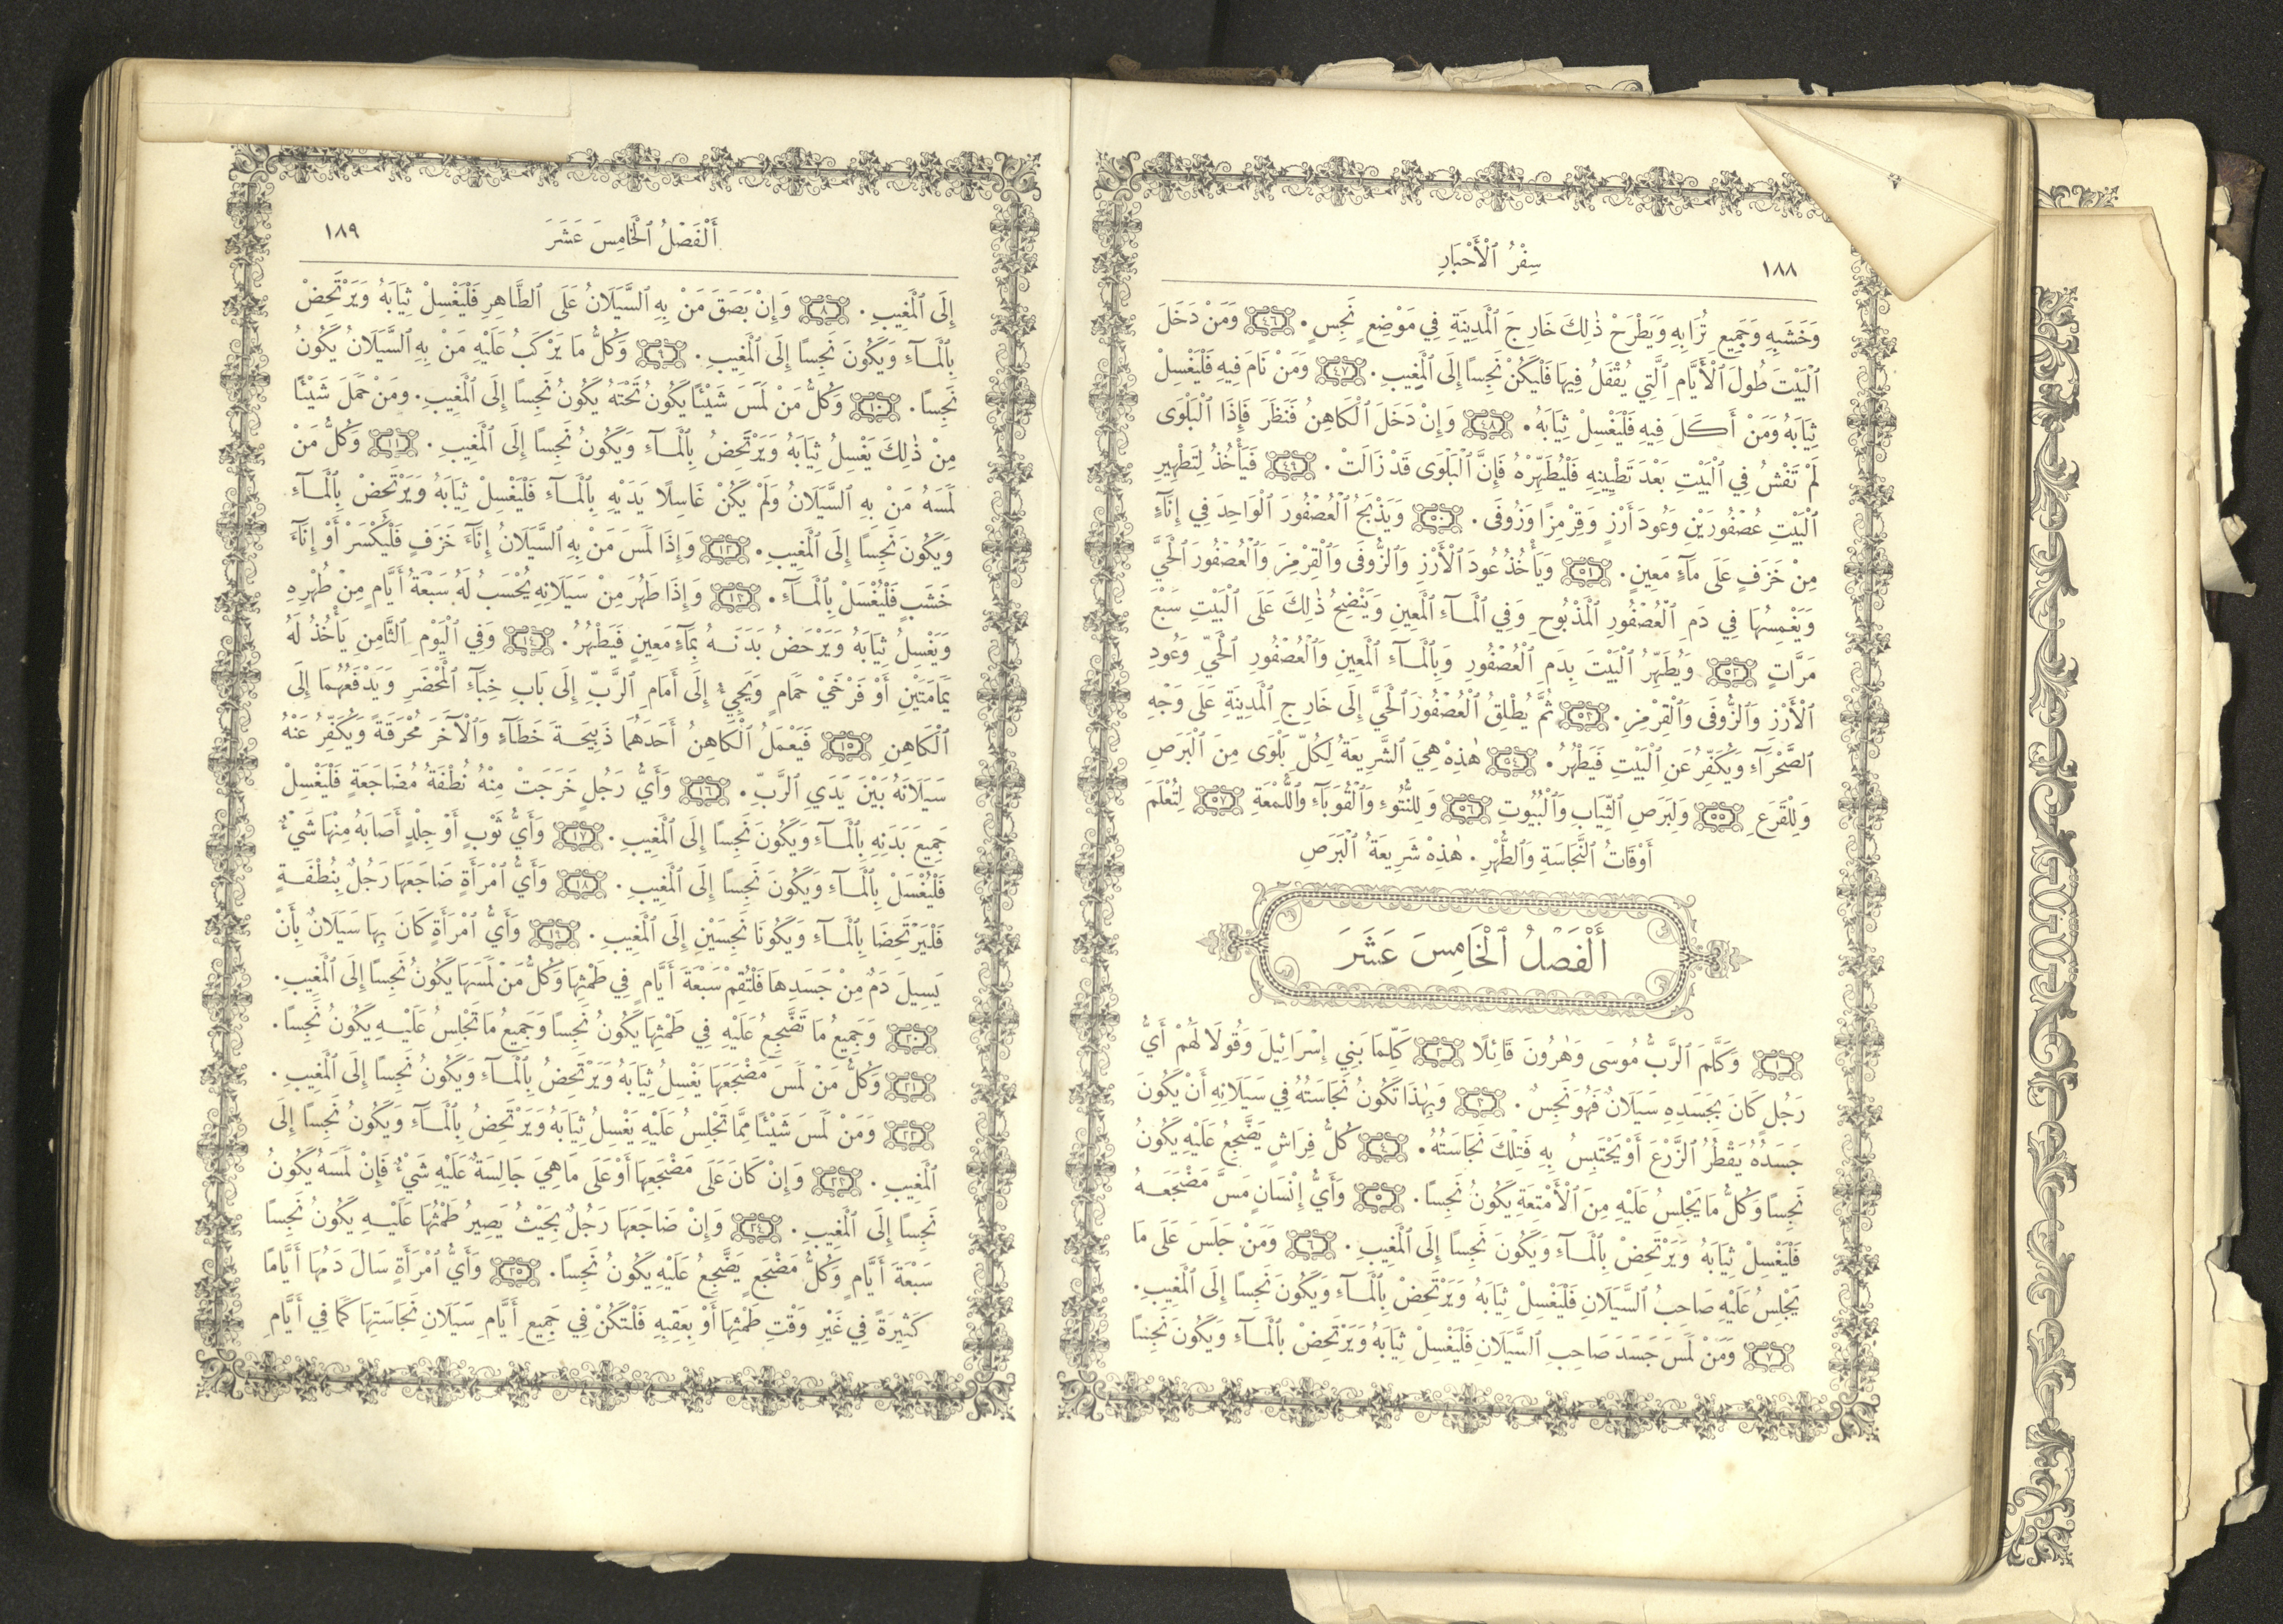 ١٨٨
سِفْرُ ٱلْأَحْبَارِ
وَخَشَبِهِ وَجَمِيعِ تُرَابِهِ وَيَطْرَحْ ذٰلِكَ خَارِجَ ٱلْمَدِينَةِ فِي مَوْضِعٍ نَجِسٍ. ٤٦ وَمَنْ دَخَلَ
ٱلْبَيْتَ طُولَ ٱلْأَيَّامِ ٱلَّتِي يُقْفَلُ فِيهَا فَلْيَكُنْ نَجِسًا إِلَى ٱلْمَغِيبِ. ٤٧ وَمَنْ نَامَ فِيهِ فَلْيَغْسِلْ
ثِيَابَهُ وَمَنْ أَكَلَ فِيهِ فَلْيَغْسِلْ ثِيَابَهُ. ٤٨ وَإِنْ دَخَلَ ٱلْكَاهِنُ فَنَظَرَ فَإِذَا ٱلْبَلْوَى
لَمْ تَفْشُ فِي ٱلْبَيْتِ بَعْدَ تَطْيِينِهِ فَلْيُطَهِّرْهُ فَإِنَّ ٱلْبَلْوَى قَدْ زَالَتْ. ٤٩ فَيَأْخُذُ لِتَطْهِيرِ
ٱلْبَيْتِ عُصْفُورَيْنِ وَعُودَ أَرْزٍ وَقِرْمِزًا وَزُوفَى. ٥٠ وَيَذْبَحُ ٱلْعُصْفُورَ ٱلْوَاحِدَ فِي إِنَآءٍ
مِنْ خَزَفٍ عَلَى مَآءٍ مَعِينٍ. ٥١ وَيَأْخُذُ عُودَ ٱلْأَرْزِ وَٱلزُّوفَى وَٱلْقِرْمِزَ وَٱلْعُصْفُورَ ٱلْحَيَّ
وَيَغْمِسُهَا فِي دَمِ ٱلْعُصْفُورِ ٱلْمَذْبُوحِ وَفِي ٱلْمَآءِ ٱلْمَعِينِ وَيَنْضِحُ ذٰلِكَ عَلَى ٱلْبَيْتِ سَبْعَ
مَرَّاتٍ ٥٢ وَيُطَهِّرُ ٱلْبَيْتَ بِدَمِ ٱلْعُصْفُورِ وَبِٱلْمَآءِ ٱلْمَعِينِ وَٱلْعُصْفُورِ ٱلْحَيِّ وَعُودِ
ٱلْأَرْزِ وَٱلزُّوفَى وَٱلْقِرْمِزِ. ٥٣ ثُمَّ يُطْلِقُ ٱلْعُصْفُورَ ٱلْحَيَّ إِلَى خَارِجِ ٱلْمَدِينَةِ عَلَى وَجْهِ
ٱلصَّحْرَآءِ وَيُكَفِّرُ عَنِ ٱلْبَيْتِ فَيَطْهُرُ. ٥٤ هٰذِهْ هِيَ ٱلشَّرِيعَةُ لِكُلِّ بَلْوَى مِنَ ٱلْبَرَصِ
وَلِلْقَرَعِ ٥٥ وَلِبَرَصِ ٱلثِّيَابِ وَٱلْبُيُوتِ ٥٦ وَلِلنُّتُوءِ وَٱلْقُوَبَآءِ وَٱللُّمْعَةِ ٥٧ لِتُعْلَمَ
أَوْقَاتُ ٱلنَّجَاسَةِ وَٱلطُّهْرِ. هٰذِهْ شَرِيعَةُ ٱلْبَرَصِ
أَلْفَصْلُ ٱلْخَامِسَ عَشَرَ
١ وَكَلَّمَ ٱلرَّبُّ مُوسَى وَهٰرُونَ قَائِلًا ٢ كَلِّمَا بَنِي إِسْرَائِيلَ وَقُولَا لَهُمْ أَيُّ
رَجُلٍ كَانَ بِجَسَدِهِ سَيَلَانٌ فَهُوَ نَجِسٌ. ٣ وَبِهٰذَا تَكُونُ نَجَاسَتُهُ فِي سَيَلَانِهِ أَنْ يَكُونَ
جَسَدُهُ يَقْطُرُ ٱلزَّرْعَ أَوْ يَحْتَبِسُ بِهِ فَتِلْكَ نَجَاسَتُهُ. ٤ كُلُّ فِرَاشٍ يَضَّجِعُ عَلَيْهِ يَكُونُ
نَجِسًا وَكُلُّ مَا يَجْلِسُ عَلَيْهِ مِنَ ٱلْأَمْتِعَةِ يَكُونُ نَجِسًا. ٥ وَأَيُّ إِنْسَانٍ مَسَّ مَضْجَعَهُ
فَلْيَغْسِلْ ثِيَابَهُ وَيَرْتَحِضْ بِٱلْمَآءِ وَيَكُونَ نَجِسًا إِلَى ٱلْمَغِيبِ. ٦ وَمَنْ جَلَسَ عَلَى مَا
يَجْلِسُ عَلَيْهِ صَاحِبُ ٱلسَّيَلَانِ فَلْيَغْسِلْ ثِيَابَهُ وَيَرْتَحِضْ بِٱلْمَآءِ وَيَكُونَ نَجِسًا إِلَى ٱلْمَغِيبِ.
٧ وَمَنْ لَمَسَ جَسَدَ صَاحِبِ ٱلسَّيَلَانِ فَلْيَغْسِلْ ثِيَابَهُ وَيَرْتَحِضْ بِٱلْمَآءِ وَيَكُونَ نَجِسًا
أَلْفَصْلُ ٱلْخَامِسَ عَشَرَ
١٨٩
إِلَى ٱلْمَغِيبِ. ٨ وَإِنْ بَصَقَ مَنْ بِهِ ٱلسَّيَلَانُ عَلَى ٱلطَّاهِرِ فَلْيَغْسِلْ ثِيَابَهُ وَيَرْتَحِضْ
بِٱلْمَآءِ وَيَكُونَ نَجِسًا إِلَى ٱلْمَغِيبِ. ٩ وَكُلُّ مَا يَرْكَبُ عَلَيْهِ مَنْ بِهِ ٱلسَّيَلَانُ يَكُونُ
نَجِسًا. ١٠ وَكُلُّ مَنْ لَمَسَ شَيْئًا يَكُونُ تَحْتَهُ يَكُونُ نَجِسًا إِلَى ٱلْمَغِيبِ. وَمَنْ حَمَلَ شَيْئًا
مِنْ ذٰلِكَ يَغْسِلُ ثِيَابَهُ وَيَرْتَحِضُ بِٱلْمَآءِ وَيَكُونُ نَجِسًا إِلَى ٱلْمَغِيبِ. ١١ وَكُلُّ مَنْ
لَمَسَهُ مَنْ بِهِ ٱلسَّيَلَانُ وَلَمْ يَكُنْ غَاسِلًا يَدَيْهِ بِٱلْمَآءِ فَلْيَغْسِلْ ثِيَابَهُ وَيَرْتَحِضْ بِٱلْمَآءِ
وَيَكُونَ نَجِسًا إِلَى ٱلْمَغِيبِ. ١٢ وَإِذَا لَمَسَ مَنْ بِهِ ٱلسَّيَلَانُ إِنَآءَ خَزَفٍ فَلْيُكْسَرْ أَوْ إِنَآءَ
خَشَبٍ فَلْيُغْسَلْ بِٱلْمَآءِ. ١٣ وَإِذَا طَهُرَ مِنْ سَيَلَانِهِ يُحْسَبُ لَهُ سَبْعَةُ أَيَّامٍ مِنْ طُهْرِهِ
وَيَغْسِلُ ثِيَابَهُ وَيَرْحَضُ بَدَنَهُ بِمَآءٍ مَعِينٍ فَيَطْهُرُ. ١٤ وَفِي ٱلْيَوْمِ ٱلثَّامِنِ يَأْخُذُ لَهُ
يَمَامَتَيْنِ أَوْ فَرْخَيْ حَمَامٍ وَيَجِيءُ إِلَى أَمَامِ ٱلرَّبِّ إِلَى بَابِ خِبَآءِ ٱلْمَحْضَرِ وَيَدْفَعُهُمَا إِلَى
ٱلْكَاهِنِ ١٥ فَيَعْمَلُ ٱلْكَاهِنُ أَحَدَهُمَا ذَبِيحَةَ خَطَآءٍ وَٱلْآخَرَ مُحْرَقَةً وَيُكَفِّرُ عَنْهُ
سَيَلَانَهُ بَيْنَ يَدَيِ ٱلرَّبِّ. ١٦ وَأَيُّ رَجُلٍ خَرَجَتْ مِنْهُ نُطْفَةُ مُضَاجَعَةٍ فَلْيَغْسِلْ
جَمِيعَ بَدَنِهِ بِٱلْمَآءِ وَيَكُونَ نَجِسًا إِلَى ٱلْمَغِيبِ. ١٧ وَأَيُّ ثَوْبٍ أَوْ جِلْدٍ أَصَابَهُ مِنْهَا شَيْءٌ
فَلْيُغْسَلْ بِٱلْمَآءِ وَيَكُونَ نَجِسًا إِلَى ٱلْمَغِيبِ. ١٨ وَأَيُّ ٱمْرَأَةٍ ضَاجَعَهَا رَجُلٌ بِنُطْفَةٍ
فَلْيَرْتَحِضَا بِٱلْمَآءِ وَيَكُونَا نَجِسَيْنِ إِلَى ٱلْمَغِيبِ. ١٩ وَأَيُّ ٱمْرَأَةٍ كَانَ بِهَا سَيَلَانٌ بِأَنْ
يَسِيلَ دَمٌ مِنْ جَسَدِهَا فَلْتُقِمْ سَبْعَةَ أَيَّامٍ فِي طَمْثِهَا وَكُلُّ مَنْ لَمَسَهَا يَكُونُ نَجِسًا إِلَى ٱلْمَغِيبِ.
٢٠ وَجَمِيعُ مَا تَضَّجِعُ عَلَيْهِ فِي طَمْثِهَا يَكُونُ نَجِسًا وَجَمِيعُ مَا تَجْلِسُ عَلَيْهِ يَكُونُ نَجِسًا.
٢١ وَكُلُّ مَنْ لَمَسَ مَضْجَعَهَا يَغْسِلُ ثِيَابَهُ وَيَرْتَحِضُ بِٱلْمَآءِ وَيَكُونُ نَجِسًا إِلَى ٱلْمَغِيبِ.
٢٢ وَمَنْ لَمَسَ شَيْئًا مِمَّا تَجْلِسُ عَلَيْهِ يَغْسِلُ ثِيَابَهُ وَيَرْتَحِضُ بِٱلْمَآءِ وَيَكُونُ نَجِسًا إِلَى
ٱلْمَغِيبِ. ٢٣ وَإِنْ كَانَ عَلَى مَضْجَعِهَا أَوْ عَلَى مَا هِيَ جَالِسَةٌ عَلَيْهِ شَيْءٌ فَإِنْ لَمَسَهُ يَكُونُ
نَجِسًا إِلَى ٱلْمَغِيبِ. ٢٤ وَإِنْ ضَاجَعَهَا رَجُلٌ بِحَيْثُ يَصِيرُ طَمْثُهَا عَلَيْهِ يَكُونُ نَجِسًا
سَبْعَةَ أَيَّامٍ وَكُلُّ مَضْجَعٍ يَضَّجِعُ عَلَيْهِ يَكُونُ نَجِسًا. ٢٥ وَأَيُّ ٱمْرَأَةٍ سَالَ دَمُهَا أَيَّامًا
كَثِيرَةً فِي غَيْرِ وَقْتِ طَمْثِهَا أَوْ بَعَقِبِهِ فَلْتَكُنْ فِي جَمِيعِ أَيَّامِ سَيَلَانِ نَجَاسَتِهَا كَمَا فِي أَيَّامِ